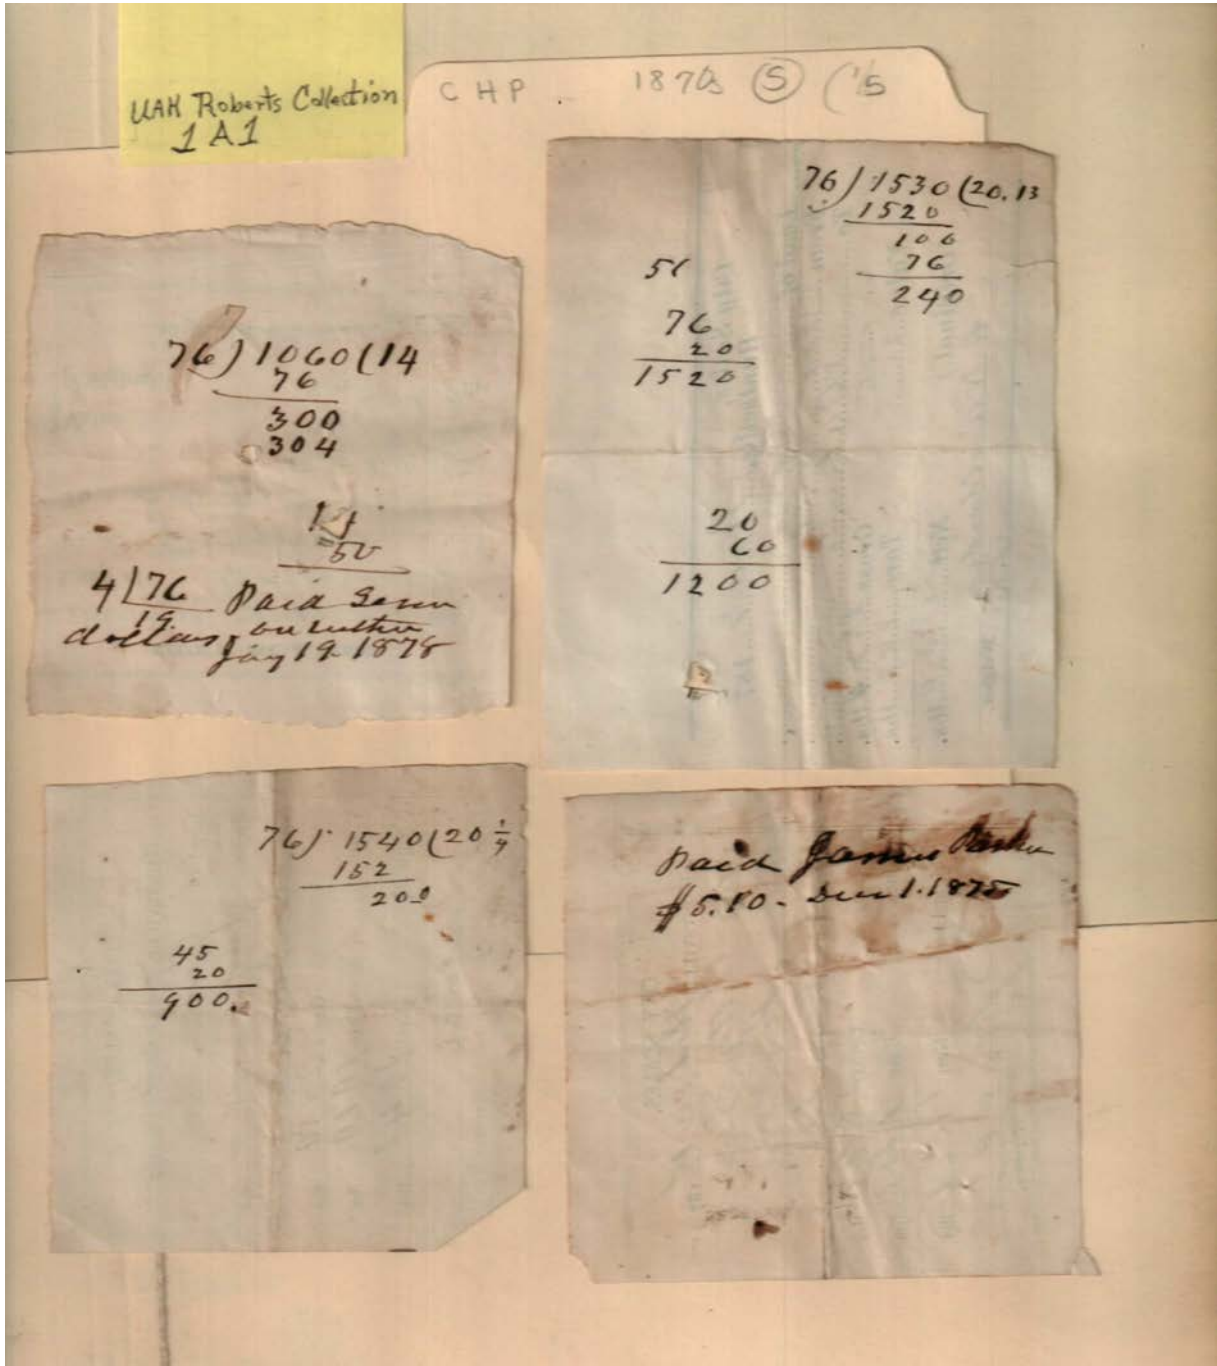 UAH Roberts Collection
1A1
CHP 1870s S ('15
76 ) 1060 ( 14
76
300
304
14
50
4 | 76 Paid Seven
19
dollars, on
Jany 19 1878
76 ) 1530 ( 20.13
1520
100
76
240
51
76
20
1520
20
60
1200
76 ) 1540 ( 20 1/4
152
200
45
20
900.
Paid James Parker
$5.80 - Dec 1. 1875